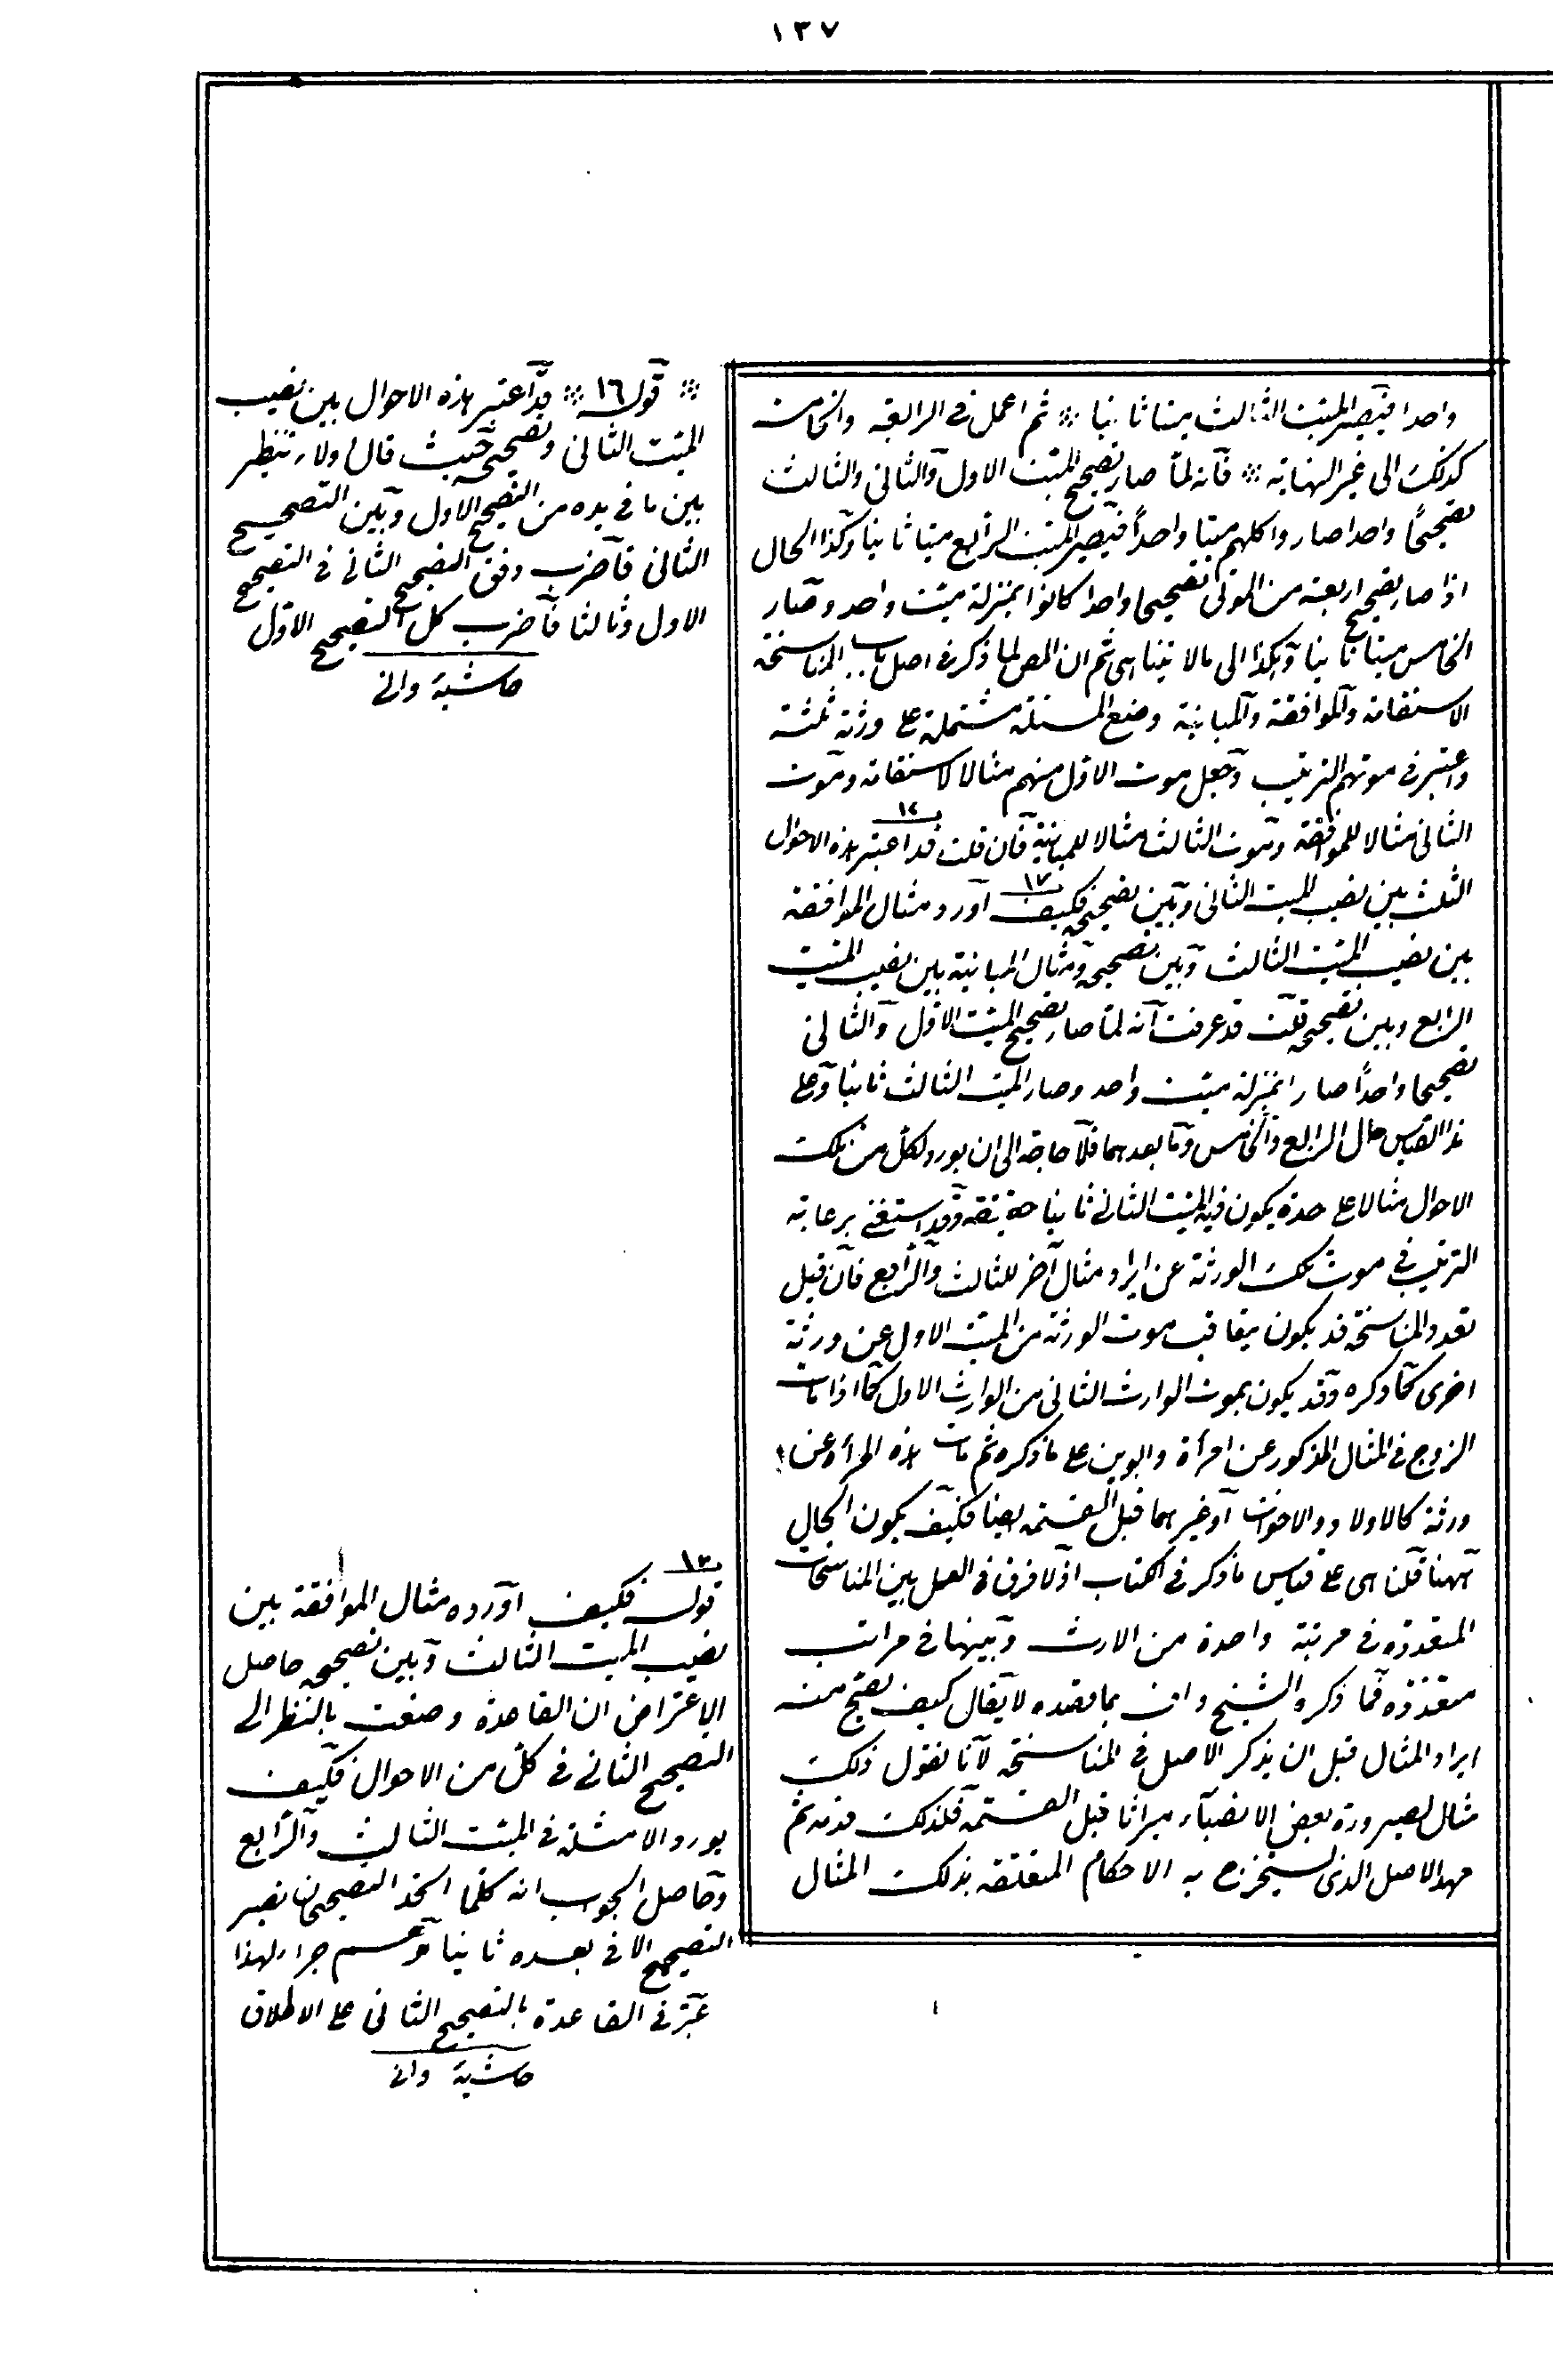 ١٣٧
واحدا فيصير الميت الثالث ميتا ثانيا ⁂ ثم اعمل فى الرابعة والخامسة
كذلك الى غير النهاية ⁂ فانه لما صار تصحيح الميت الاول والثانى والثالث
تصحيحًا واحدا صاروا كلهم ميتا واحدًا فيصير الميت الرابع ميتا ثانيا وكذا الحال
اذا صار تصحيح اربعة من الموتى تصحيحا واحدا كانوا بمنزلة ميت واحد وصار
الخامس ميتا ثانيا وهكذا الى مالا يتناهى ثم ان المص لما ذكر فى اصل باب المناسخة
الاستقامة والموافقة والمباينة وضع المسئلة مشتملة على ورثة ثلثة
واعتبر فى موتهم الترتيب وجعل موت الاول منهم مثالا للاستقامة وموت
الثانى مثالا للموافقة وموت الثالث مثالا للمباينة فان قلت ١٦ قد اعتبر هذه الاحوال
الثلث بين نصيب الميت الثانى وبين تصحيحه فكيف ١٧ اورد مثال الموافقة
بين نصيب الميت الثالث وبين تصحيحه ومثال المباينة بين نصيب الميت
الرابع وبين تصحيحه قلت قد عرفت انه لما صار تصحيح الميت الاول والثانى
تصحيحا واحدًا صارا بمنزلة ميت واحد وصار الميت الثالث ثانيا وعلى
هذا القياس حال الرابع والخامس وما بعدهما فلا حاجة الى ان يورد لكل من تلك
الاحوال مثالا على حدة يكون فيه الميت الثانى ثانيا حقيقة وقد استغنى برعاية
الترتيب فى موت تلك الورثة عن ايراد مثال آخر للثالث والرابع فان قيل
تعدد المناسخة قد يكون بتعاقب موت الورثة من الميت الاول عن ورثة
اخرى كما ذكره وقد يكون بموت الوارث الثانى من الوارث الاول كما اذا مات
الزوج فى المثال المذكور عن امرأة وابوين على ما ذكره ثم مات هذه المرأة عن
ورثة كالاولاد والاخوات او غيرهما قبل القسمة ايضا فكيف يكون الحال
ههنا قلنا هى على قياس ما ذكر فى الكتاب اذ لا فرق فى العمل بين المناسخات
المتعددة فى مرتبة واحدة من الارث وبينها فى مراتب
متعددة فما ذكره الشيخ واف بمقصده لا يقال كيف يصح منه
ايراد المثال قبل ان يذكر الاصل فى المناسخة لانا نقول ذلك
مثال لصيرورة بعض الانصباء ميراثا قبل القسمة فلذلك قدمه ثم
مهد الاصل الذى يستخرج به الاحكام المتعلقة بذلك المثال
⁂ قوله ١٦ ⁂ قد اعتبر هذه الاحوال بين نصيب
الميت الثانى وتصحيحه حيث قال اولا وتنظر
بين ما فى يده من التصحيح الاول وبين التصحيح
الثانى فاضرب وفق التصحيح الثانى فى التصحيح
الاول وثالثا فاضرب كل التصحيح الاول
حاشية وانى
١٣
قوله فكيف اورده مثال الموافقة بين
نصيب الميت الثالث وبين تصحيحه حاصل
الاعتراض ان القاعدة وضعت بالنظر الى
التصحيح الثانى فى كل من الاحوال فكيف
يورد الامثلة فى الميت الثالث والرابع
وحاصل الجواب انه كلما اتخذ التصحيحان يصير
التصحيح الا فى بعده ثانيا جرا لهذا
عبر فى القاعدة بالتصحيح الثانى على الاطلاق
حاشية وانى